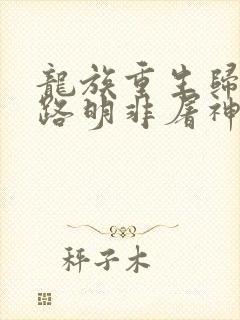 龍族重生歸
路明非屠神
秤子木